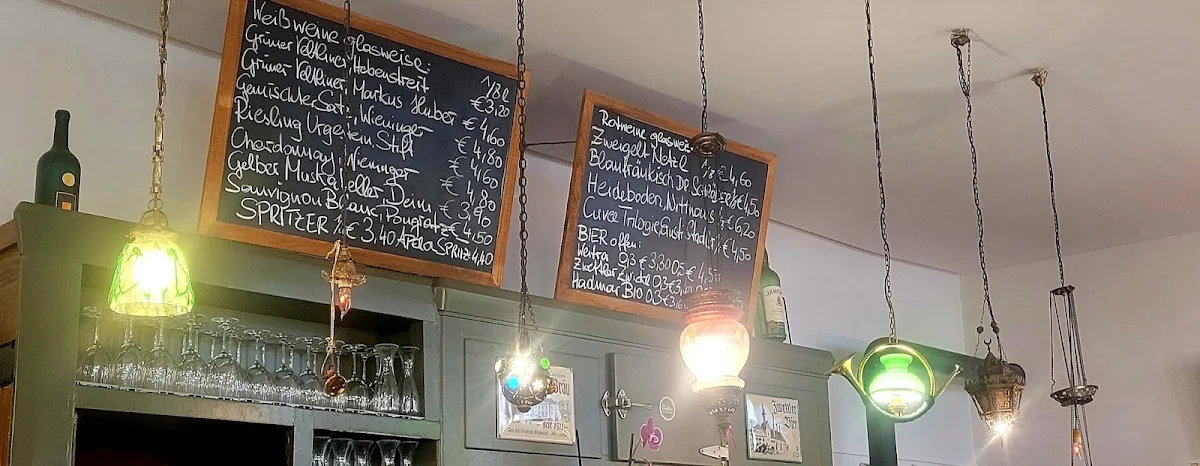 Weißweine glasweise:
1/8l
Grüner Veltliner, Hebenstreit €3,20
Grüner Veltliner, Markus Huber €4,60
Gemischter Satz, Wieninger €4,80
Riesling Urgestein, Stift €4,60
Chardonnay, Wieninger €4,80
Gelber Muskateller, Deim €3,90
Sauvignon Blanc, Pongratz €4,50
SPRITZER €3,40 APEROL SPRITZ 4,40
Rotweine glasweise
Zweigelt Netzl 1/8 €4,60
Blaufränkisch €4,50
Heideboden, Nittnaus €6,20
Cuvee Trilogie, Stadler €4,50
BIER offen:
Weitra 0,3 €3,30 0,5 €4,5
Zwettler Zwickl 0,3 €3,
Hadmar BIO 0,3 €3,
Zwettler
Bier